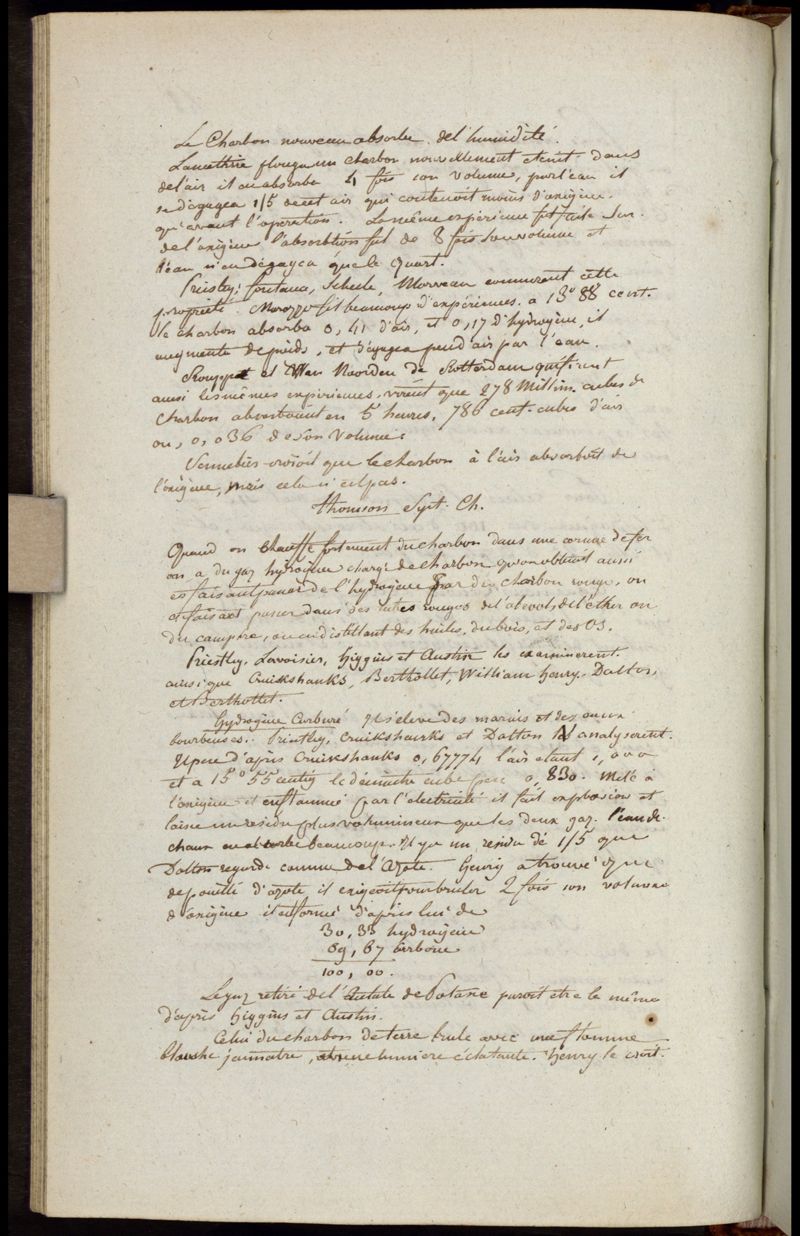 Le Charbon nouveau absorbe de l'humidité.
Lametthrie plongea un charbon nouvellement eteint dans
de l'air il en absorba 4 fois son volume, par l'eau il
se dégagea 1/5 de cet air qui contenoit moins d'oxigène
qu'avant l'operation. La même experience fut faite sur
de l'oxigène l'absorbtion fut de 8 fois son volume et
l'eau n'en dégagea que le quart.
Priestley, fontana, Scheele, Morveau connurent cette
propriété. Morozzo fit beaucoup d'expériences. a 13° 88 cent.
le charbon absorba 0,41 d'air, et 0,17 d'hydrogène, il
augmenta de poids, et dégagea peu d'air par l'eau.
Rouppe et Van Noorden de Rotterdam qui firent
aussi les mêmes experiences, virent que 278 Millim. cubes de
Charbon absorboient en 5 heures, 786 cent. cubes d'air
ou, 0,036 de son Volume.
Sennebier croioit que le charbon à l'air absorboit de
l'oxigène, mais cela n'est pas.
thomson Syst. Ch.
Quand on chauffe fortement du charbon dans une cornue de fer
on a du gaz hydrogène chargé de charbon qu'on obtient aussi
en faisant passer de l'hydrogène par du charbon rouge, ou
en faisant passer dans des tubes rouges de l'alcool, de l'éther ou
du campre, ou en distillant des huiles, du bois, et des os.
Priestley, Lavoisier, Higgins et Austin les examinerent.
ainsi que Cruikshanks, Berthollet, William henry, Dalton,
et Berthollet.
Hydrogène Carburé Il s'éleve des marais et des eaux
bourbeuses. Priestley, Cruikshanks et Dalton l'analyserent.
Il pese d'après Cruikshanks 0,67774 l'air etant 1,000
et a 15° 55 centig le décimètre cube pese 0,830. Melé a
l'oxigène et enflammé par l'electricité il fait explosion et
laisse un residu plus volumineux que les deux gaz. l'eau de
chaux en absorbe beaucoup. Il y a un residu de 1/5 que
Dalton regarde comme de l'Azote. Henry a trouvé que
depouillé d'azote il exigeoit pour bruler 2 fois son volume
d'oxigène il est formé d'après lui de
30,33 hydrogène
69,67 carbone
100,00.
Le gaz retiré de l'Acetate de Potasse paroit etre le même
d'après Higgins et Austin.
Celui du charbon de terre brule avec une flamme
blanche jaunatre, et une lumiere éclatante. Henry le croit.